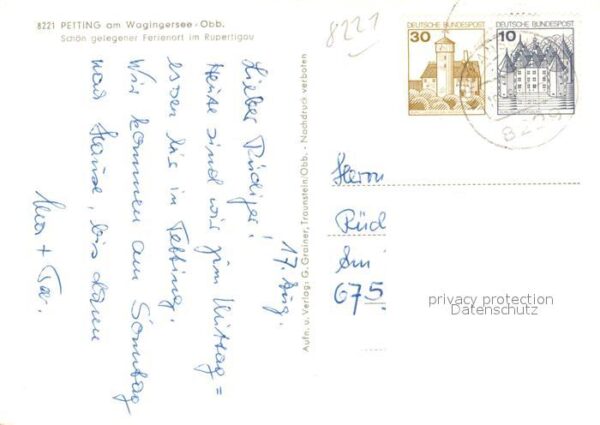 8221 PETTING am Wagingersee · Obb.
Schön gelegener Ferienort im Rupertigau
8221
DEUTSCHE BUNDESPOST
30
DEUTSCHE BUNDESPOST
10
822
17. Aug.
Lieber Rüdiger!
Heute sind wir zum Mittag=
essen his in Petting.
Wir kommen am Sonntag
nach Hause, bis dann
Aufn. u. Verlag: G. Grainer, Traunstein/Obb. - Nachdruck verboten
Herrn
Rüd
675
privacy protection
Datenschutz